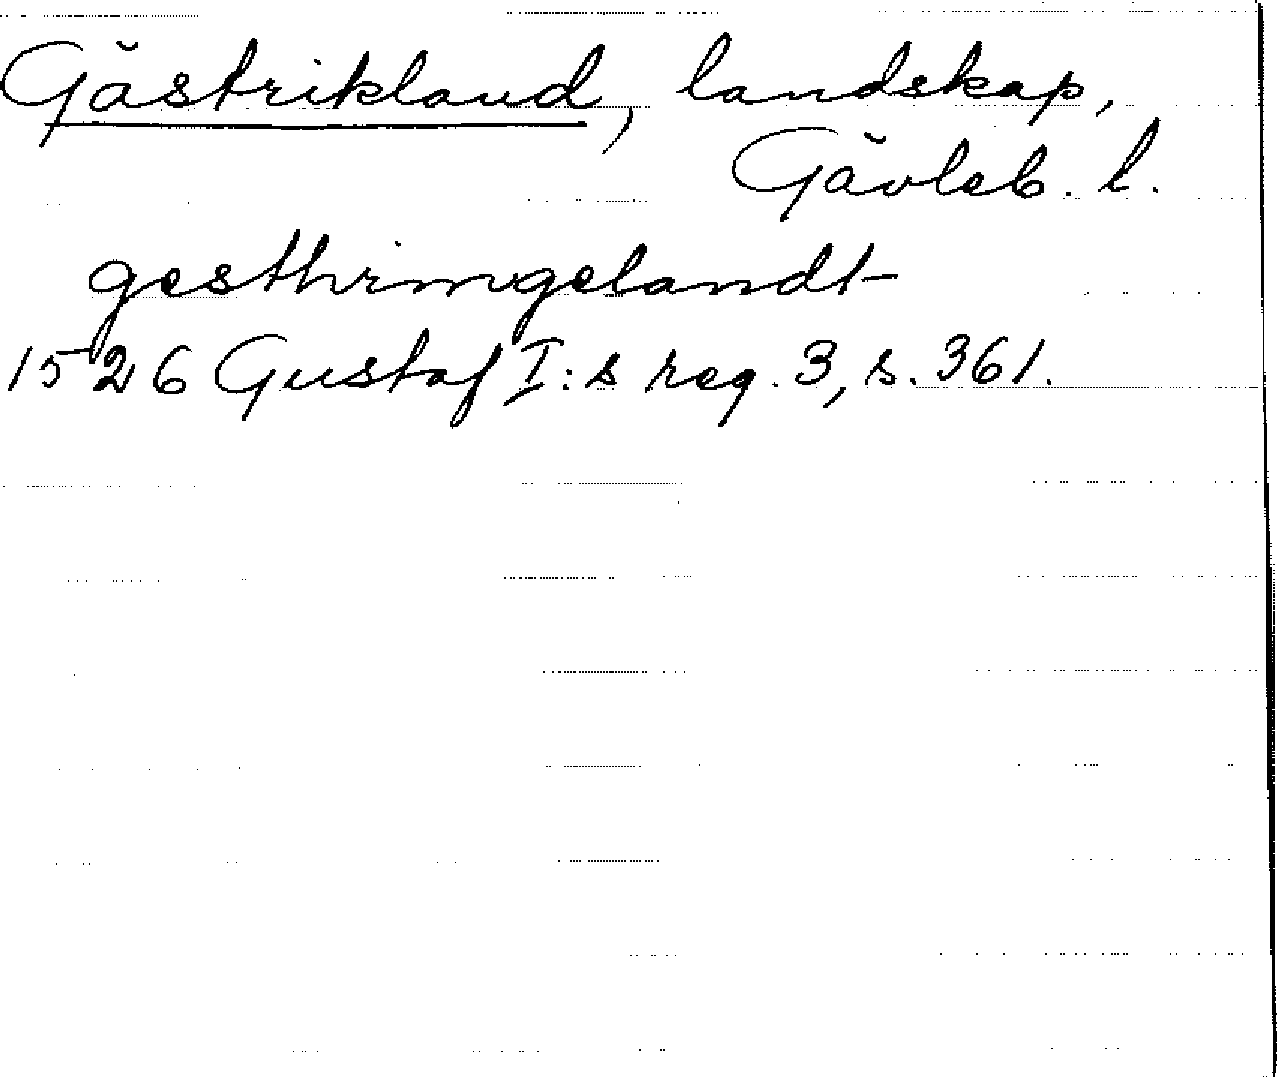 Gästrikland, landskap,
Gävleb. l.
gesthringelandt
1526 Gustaf I:s reg. 3, s. 361.